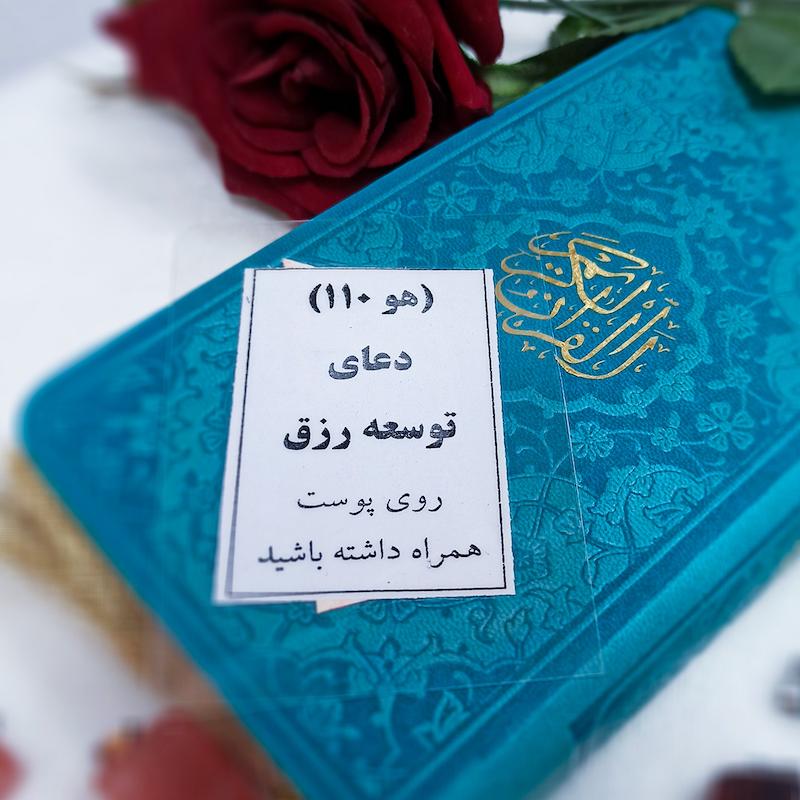 (هو ۱۱۰)
دعای
توسعه رزق
روی پوست
همراه داشته باشید
القرآن الكريم